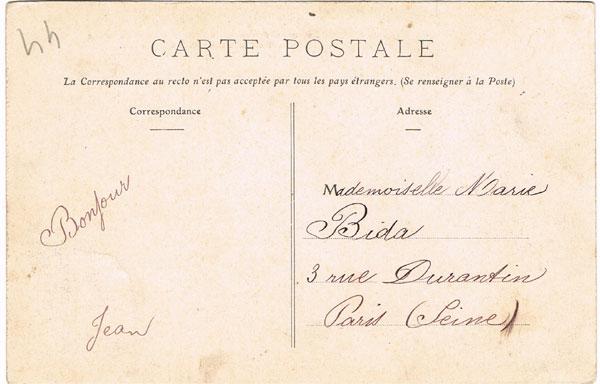 44
CARTE POSTALE
La Correspondance au recto n'est pas acceptée par tous les pays étrangers. (Se renseigner à la Poste)
Correspondance
Bonjour
Jean
Adresse
Mademoiselle Marie
Bida
3 rue Durantin
Paris (Seine)